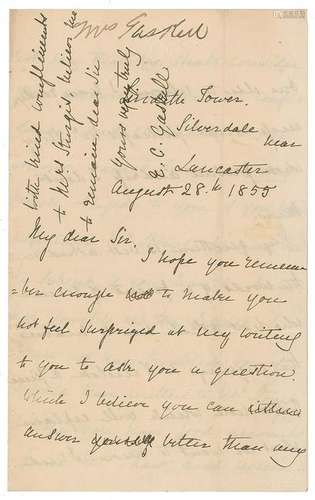 Mrs Gaskell
Tower.
Silverdale
near
Lancaster
August 28th 1855
My dear Sir.
I hope you remem
=ber enough to make you
not feel surprized at my writing
to you to ask you a question.
which I believe you can
answer better than any
with kind compliments
to Mrs Sturgis believe me
to remain dear Sir
Yours very truly
E. C. Gaskell